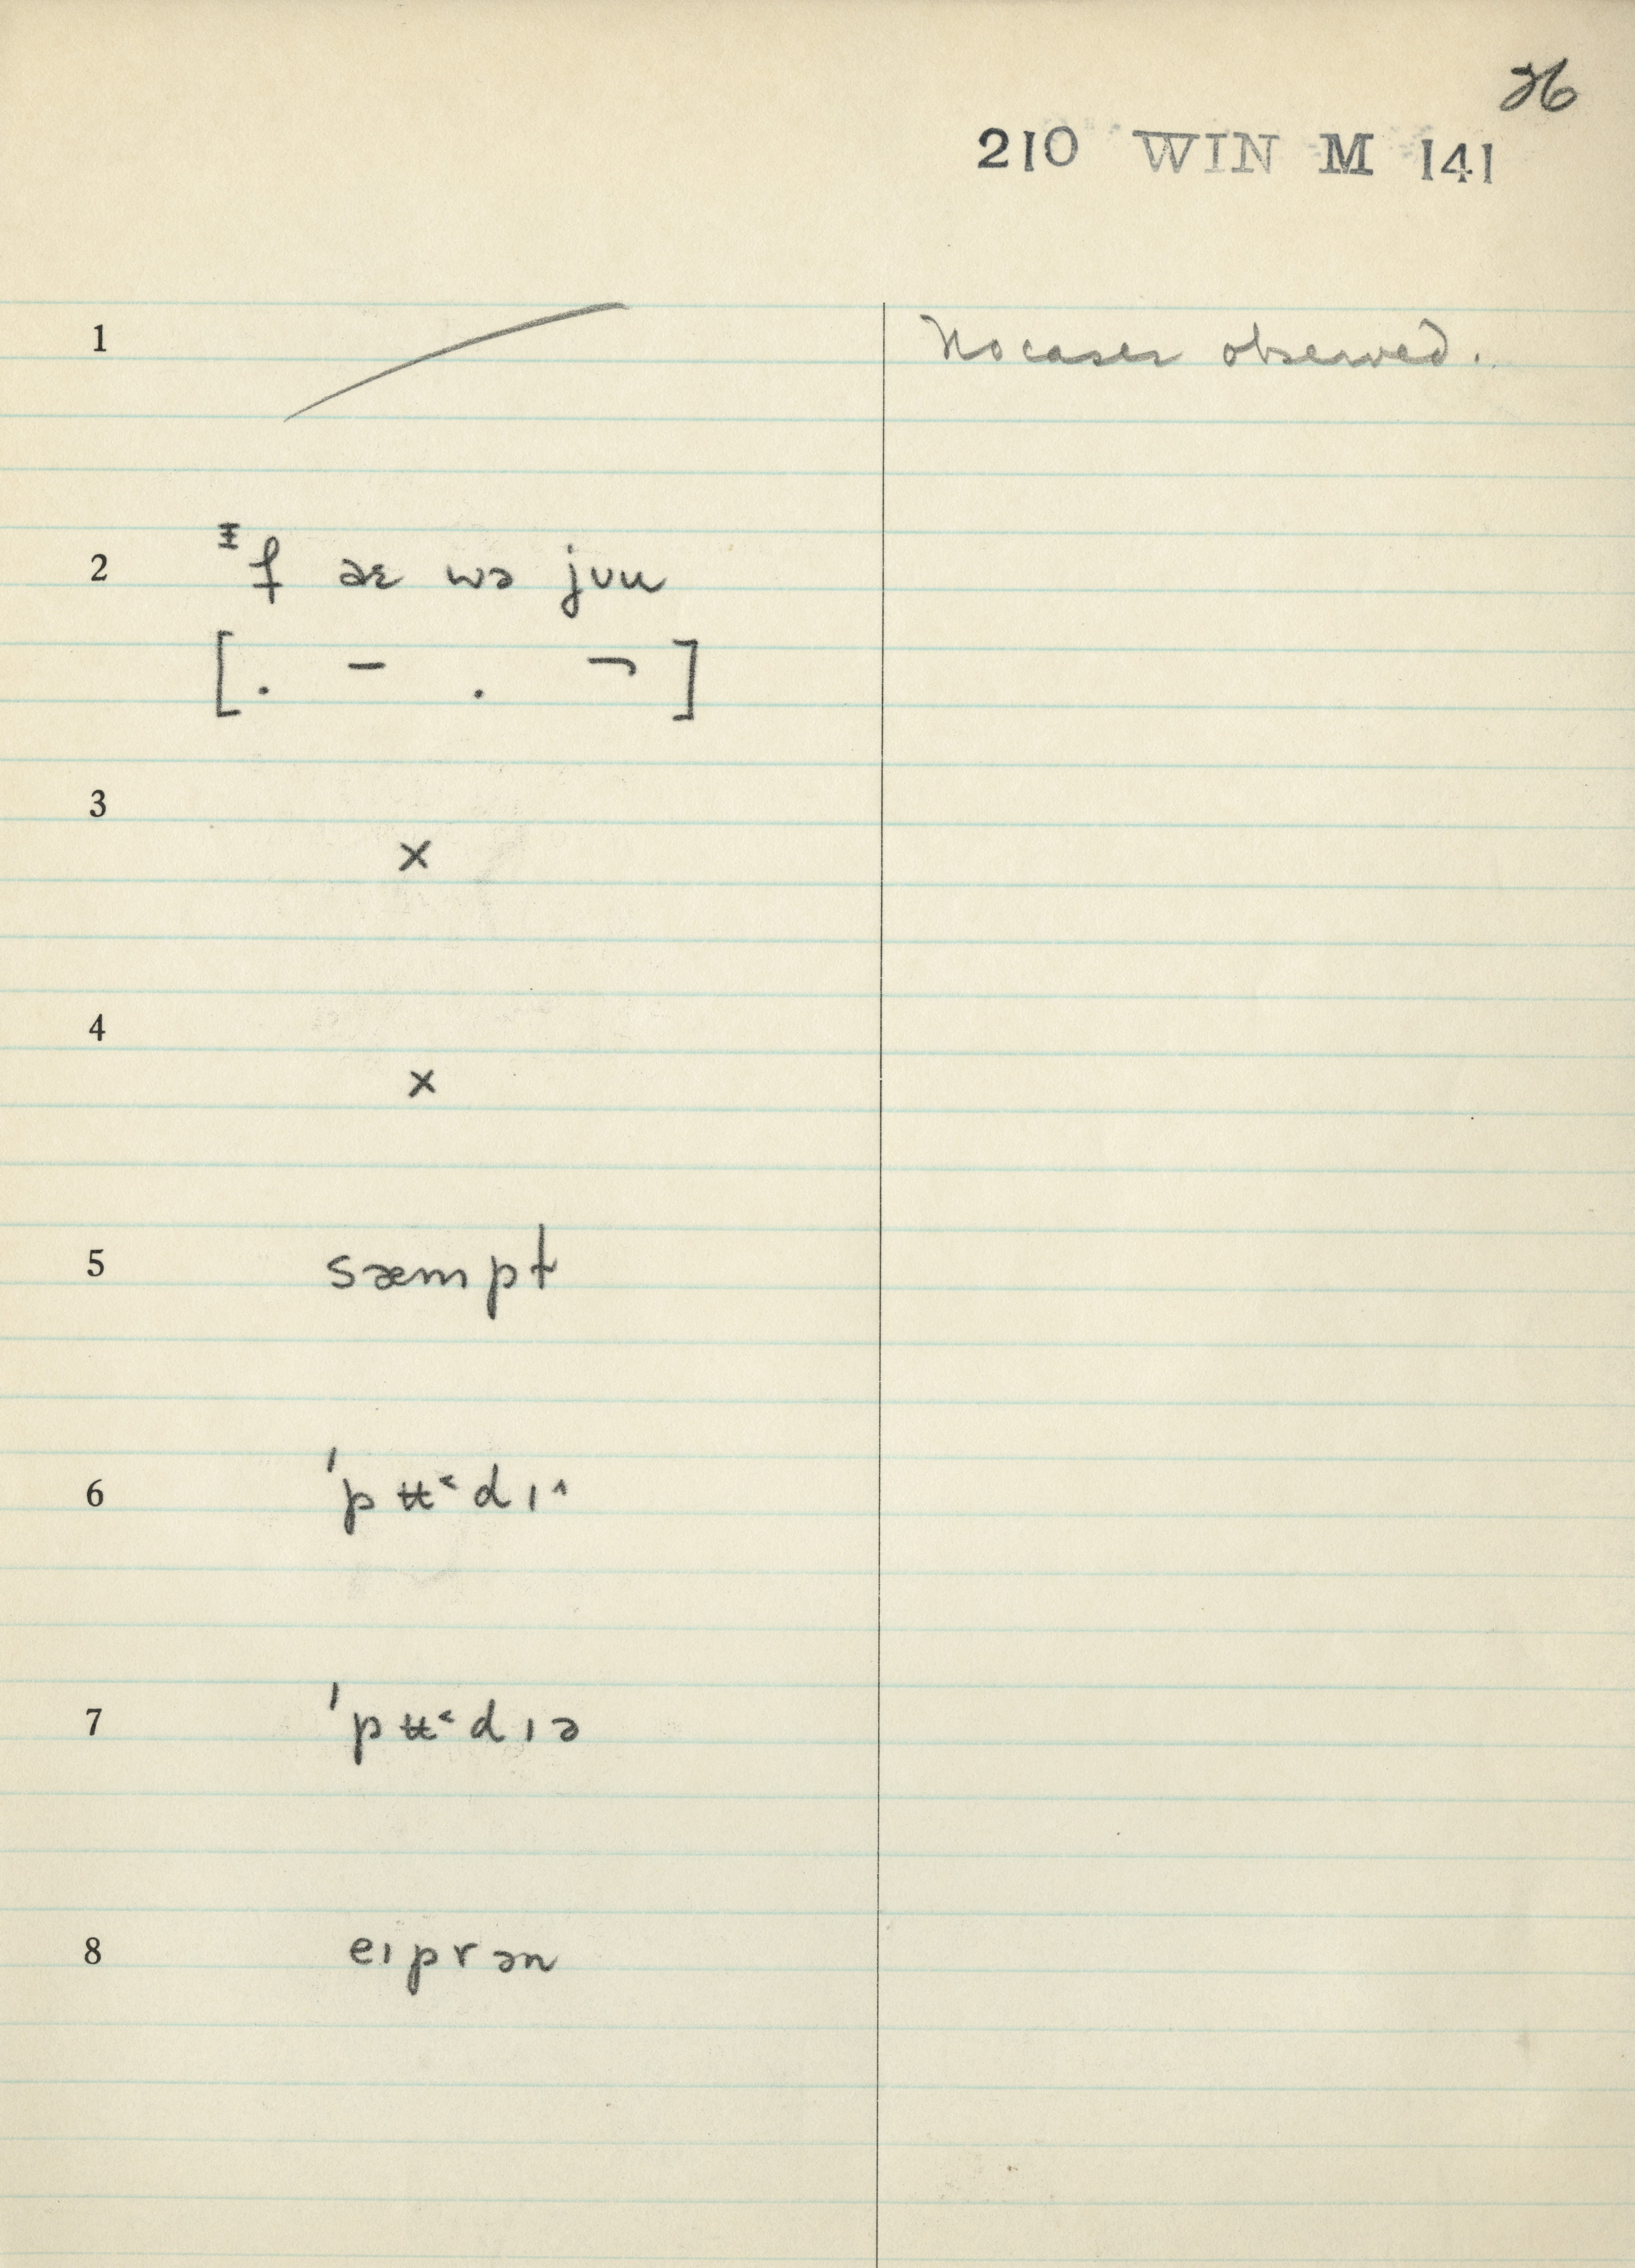 26
210 WIN M 141
1 No cases observed.
2 ᵻf æɛ wə jʊu
[. – . ¬]
3 ×
4 ×
5 sæmpt
6 ˈpʉ˂dɪ˄
7 ˈpʉ˂dɪə
8 eɪprən